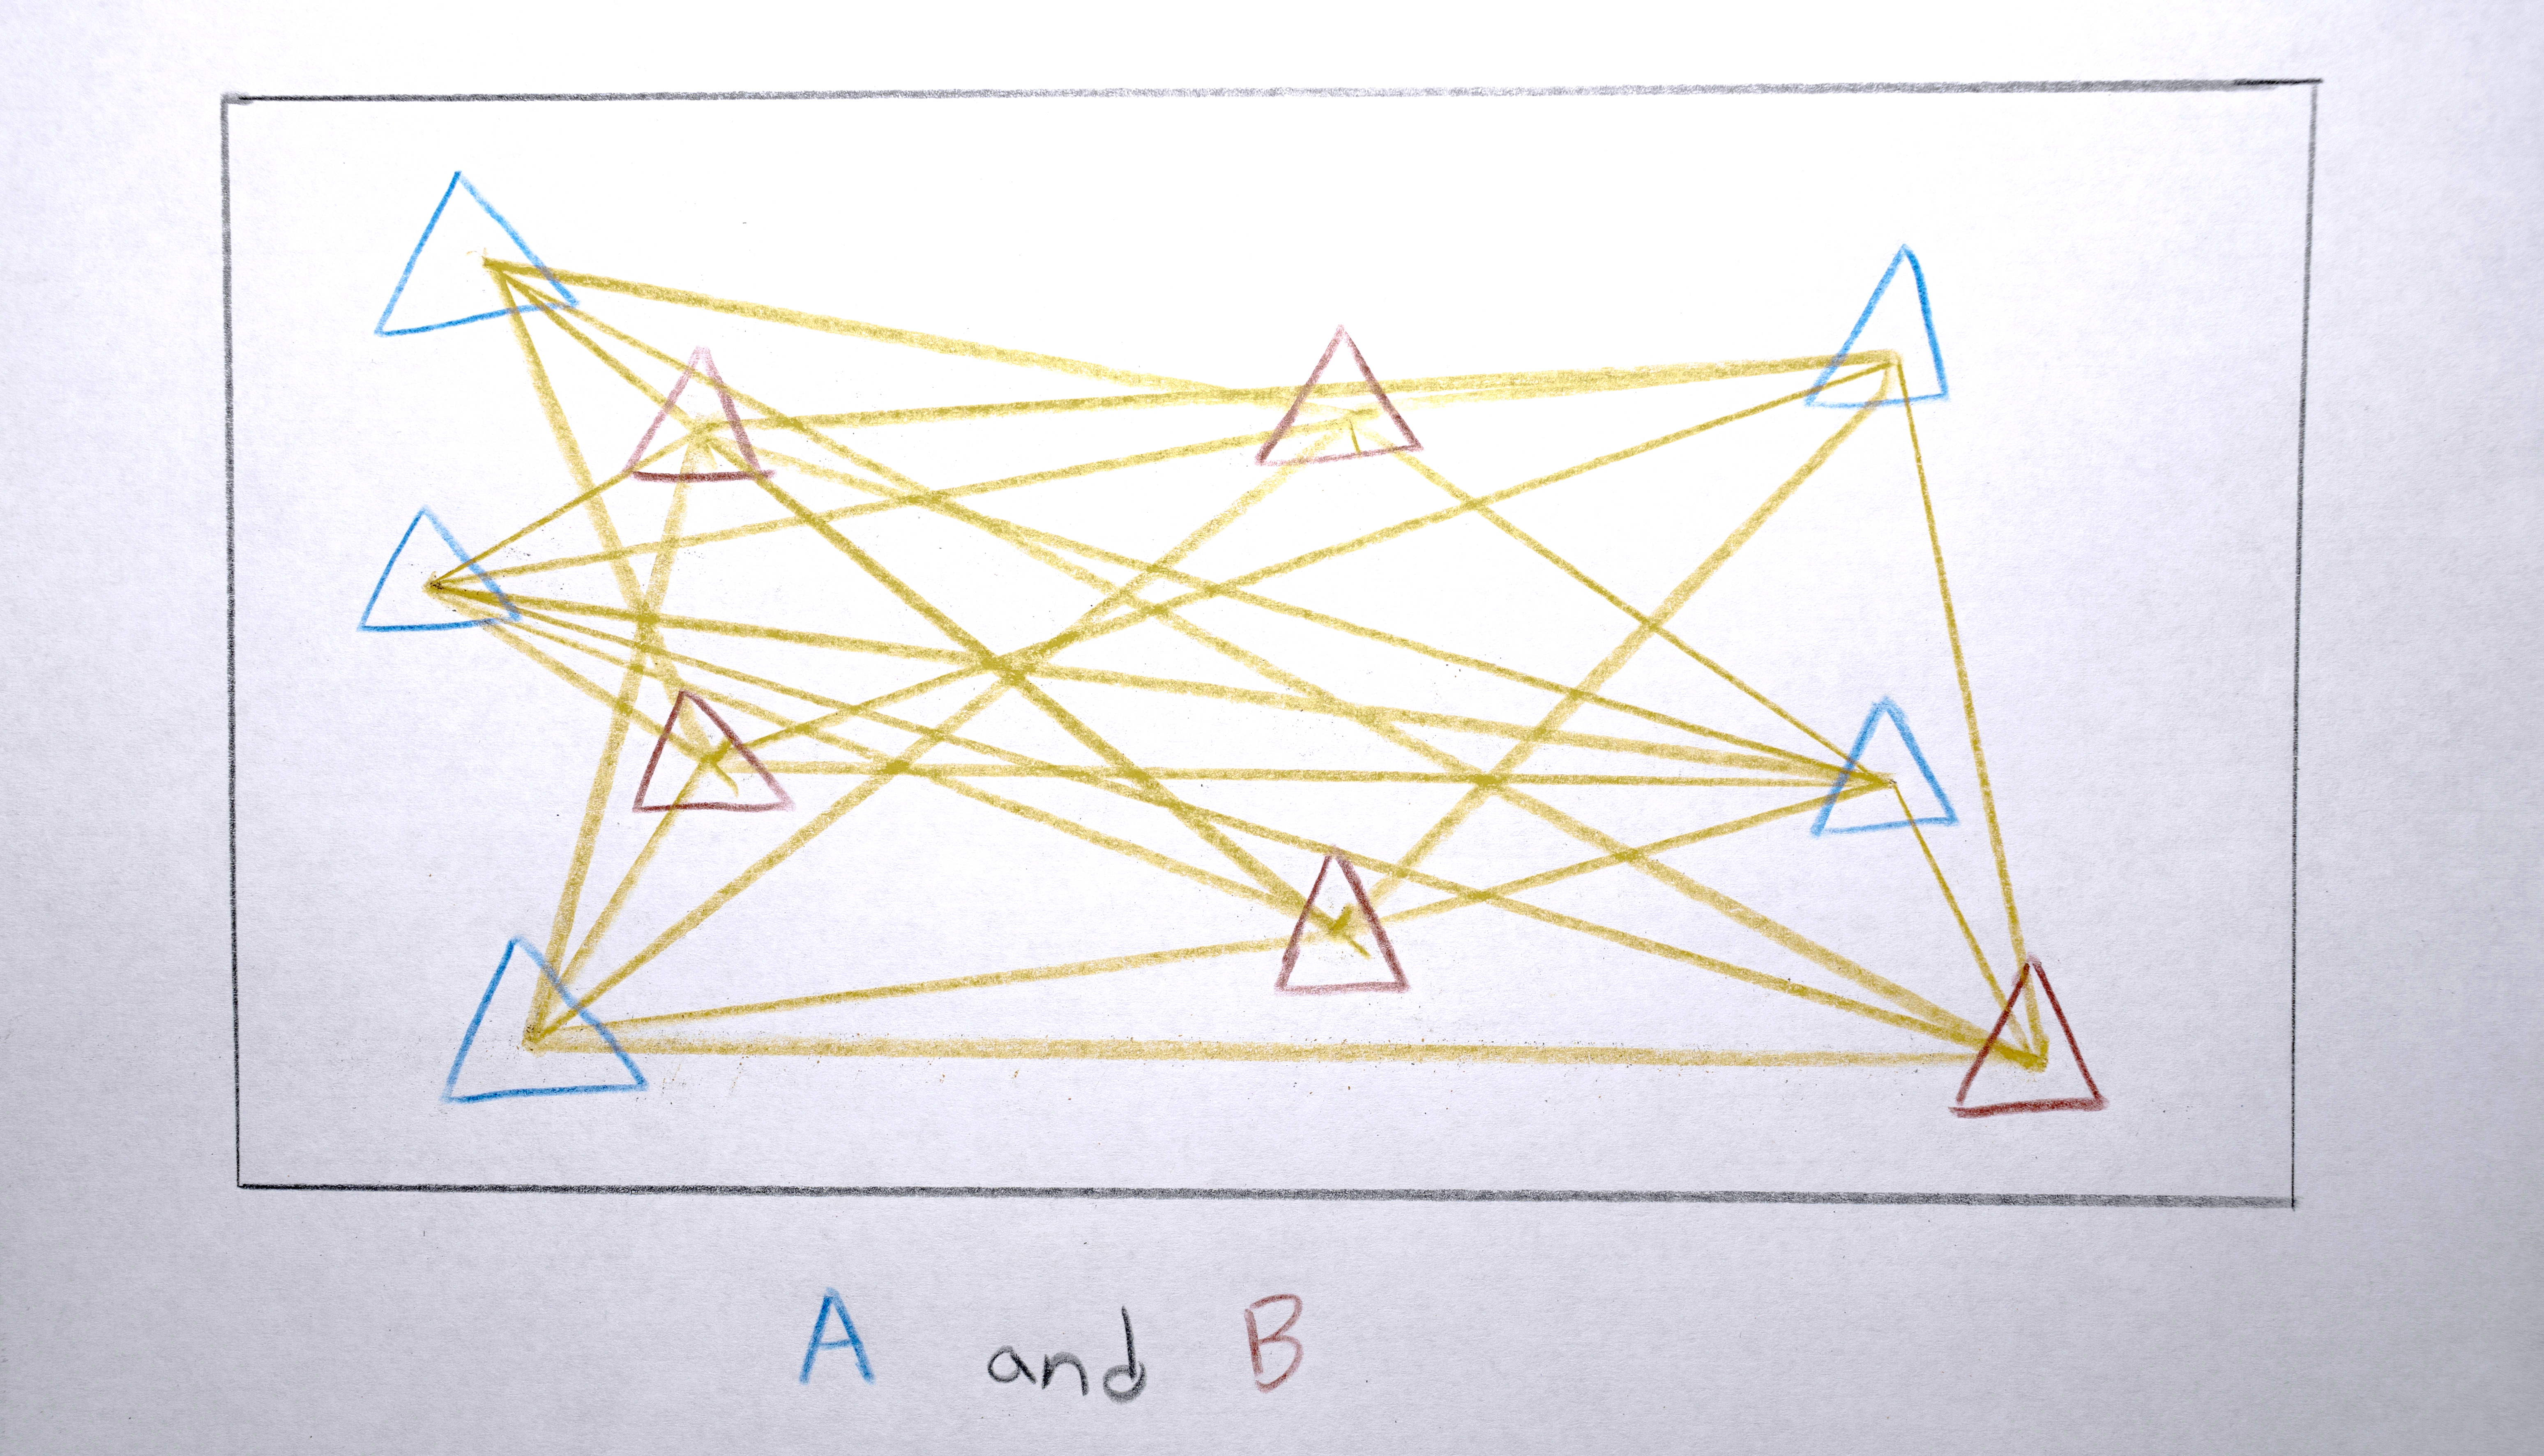 A and B